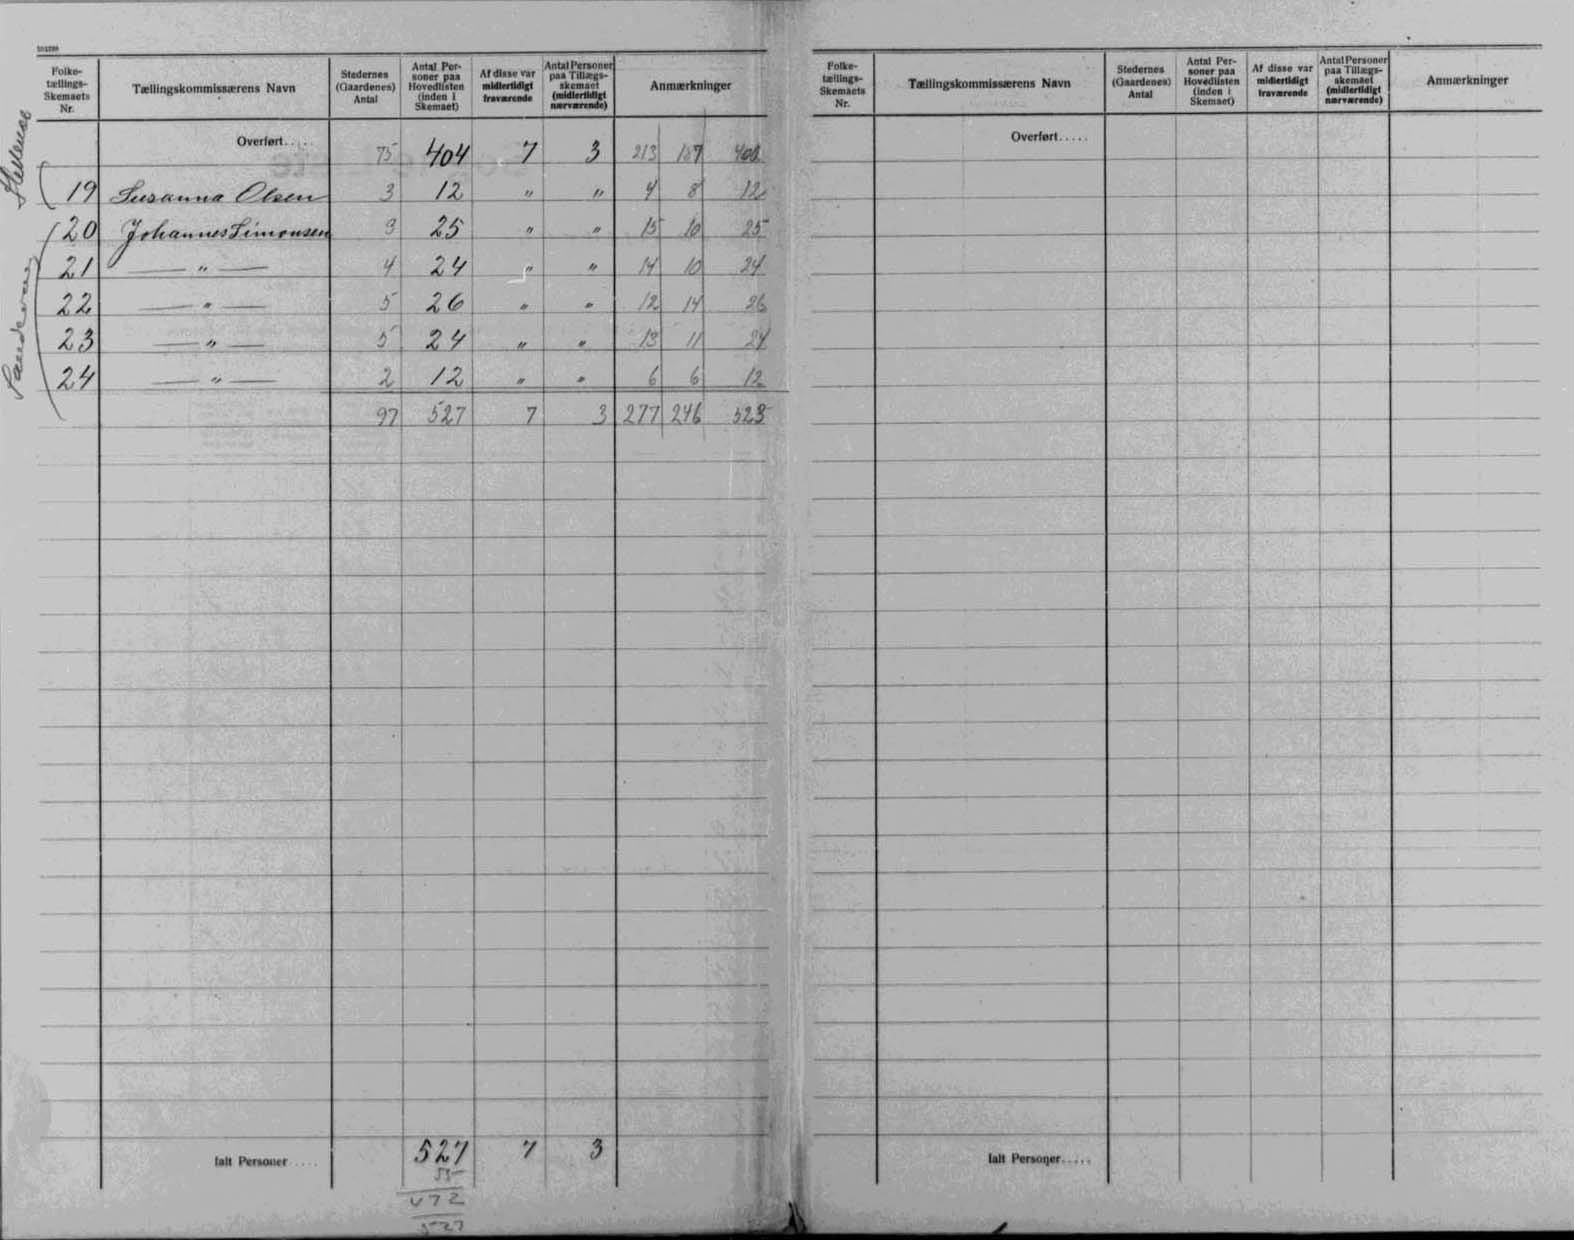 Folke-
tællings-
Skemaets
Nr.
Tællingskommissærens Navn
Stedernes
(Gaardenes)
Antal
Antal Per-
soner paa
Hovedlisten
(inden i
Skemaet)
Af disse var
midlertidigt
fraværende
Antal Personer
paa Tillægs-
skemaet
(midlertidigt
nærværende)
Anmærkninger
Overført..... 75 404 7 3 213 187 400
19 Susanna Olsen 3 12 " " 4 8 12
20 Johannes Simonsen 3 25 " " 15 10 25
21 — " — 4 24 " " 14 10 24
22 — " — 5 26 " " 12 14 26
23 — " — 5 24 " " 13 11 24
24 — " — 2 12 " " 6 6 12
97 527 7 3 277 246 523
Ialt Personer..... 527 7 3
55
472
527
Folke-
tællings-
Skemaets
Nr.
Tællingskommissærens Navn
Stedernes
(Gaardenes)
Antal
Antal Per-
soner paa
Hovedlisten
(inden i
Skemaet)
Af disse var
midlertidigt
fraværende
Antal Personer
paa Tillægs-
skemaet
(midlertidigt
nærværende)
Anmærkninger
Overført.....
Ialt Personer.....